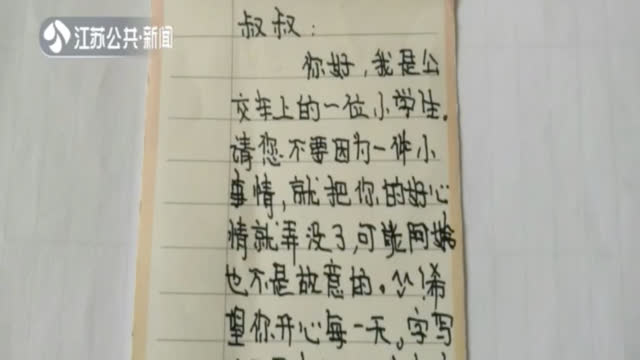 江苏公共·新闻
叔叔：
你好，我是公
交车上的一位小学生。
请您不要因为一件小
事情，就把你的好心
情就弄没了，可能阿姨
也不是故意的。^^希
望你开心每一天。字写